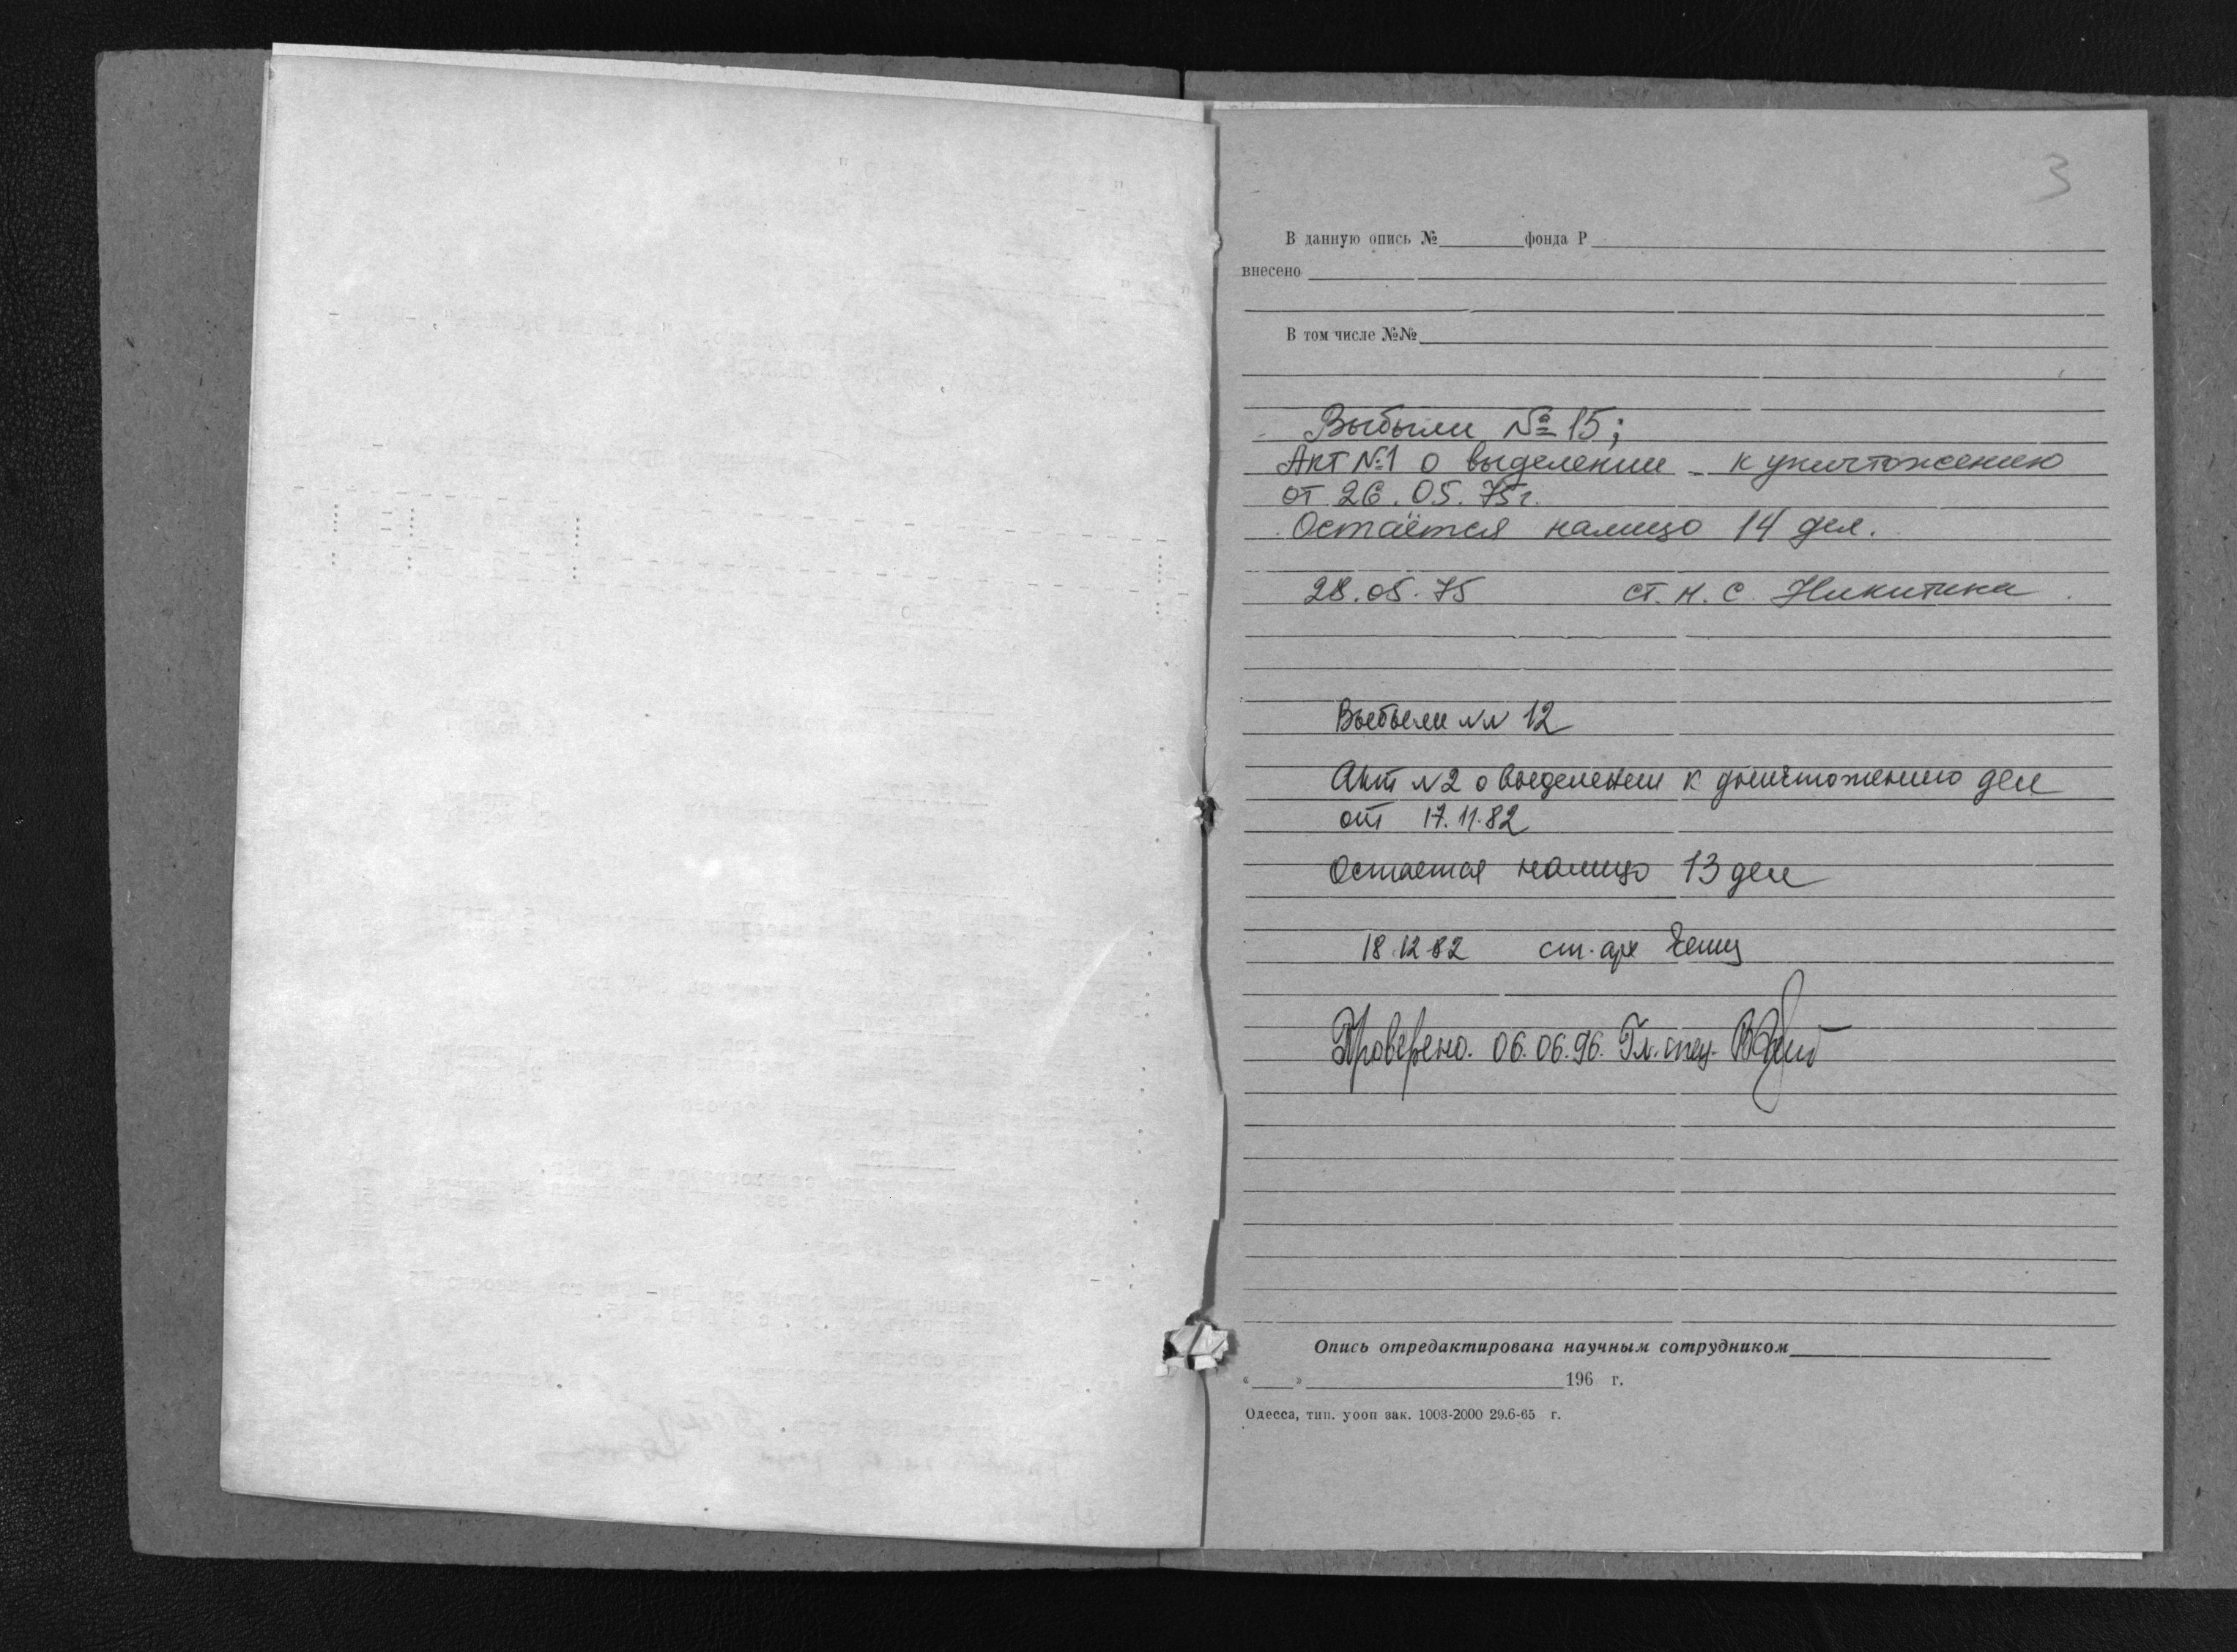 3
В данную опись № фонда Р
внесено
В том числе №№
Выбыли № 15;
Акт №1 о выделении - к уничтожению
от 26.05.75г.
Остаётся налицо 14 дел.
28.05.75 ст. н. с. Никитина
Выбыли №№ 12
Акт №2 о выделении к уничтожению дел
от 17.11.82
Остается налицо 13 дел
18.12.82 ст. арх
Проверено. 06.06.96. Гл. спец.
Опись отредактирована научным сотрудником
« » 196 г.
Одесса, тип. уооп зак. 1003-2000 29.6-65 г.